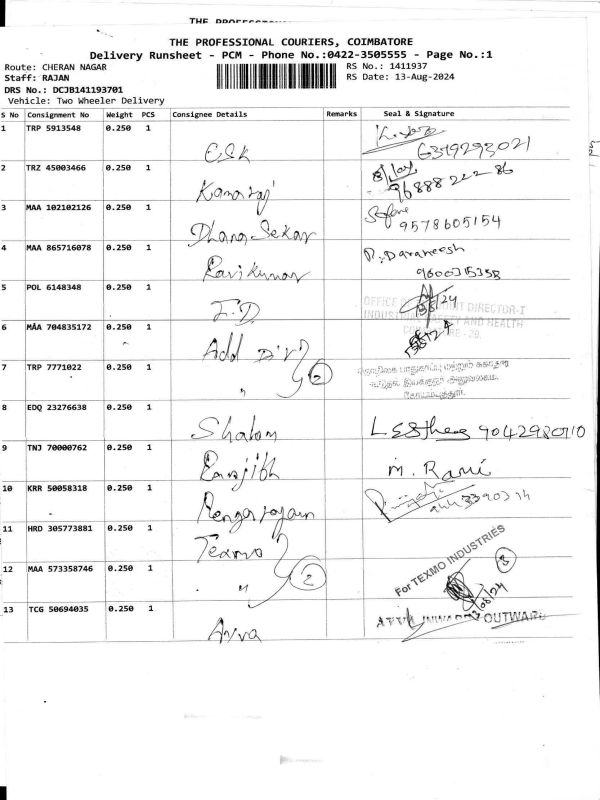 THE PROFESSIONAL COURIERS, COIMBATORE
Delivery Runsheet - PCM - Phone No.:0422-3505555 - Page No.:1
Route: CHERAN NAGAR
RS No.: 1411937
Staff: RAJAN
RS Date: 13-Aug-2024
DRS No.: DCJB141193701
Vehicle: Two Wheeler Delivery
S No Consignment No Weight PCS Consignee Details Remarks Seal & Signature
1 TRP 5913548 0.250 1
ESK 6379293021
2 TRZ 45003466 0.250 1
Kamaraj 96888 222 86
3 MAA 102102126 0.250 1
Dhana Sekar 9578605154
4 MAA 865716078 0.250 1 P. Daraneesh
Ravikumar 9600315358
5 POL 6148348 0.250 1
I.D
OFFICE OF JOINT DIRECTOR-I
INDUSTRIAL SAFETY AND HEALTH
6 MAA 704835172 0.250 1
Add Dir
7 TRP 7771022 0.250 1
" 2
8 EDQ 23276638 0.250 1
Shalom 9042980710
9 TNJ 70000762 0.250 1
Ranjith M. Rani
10 KRR 50058318 0.250 1
Rengarajan
11 HRD 305773881 0.250 1
Texmo
For TEXMO INDUSTRIES
3
12 MAA 573358746 0.250 1
" 2
13 TCG 50694035 0.250 1
Ayva
AYVA INWARD / OUTWARD